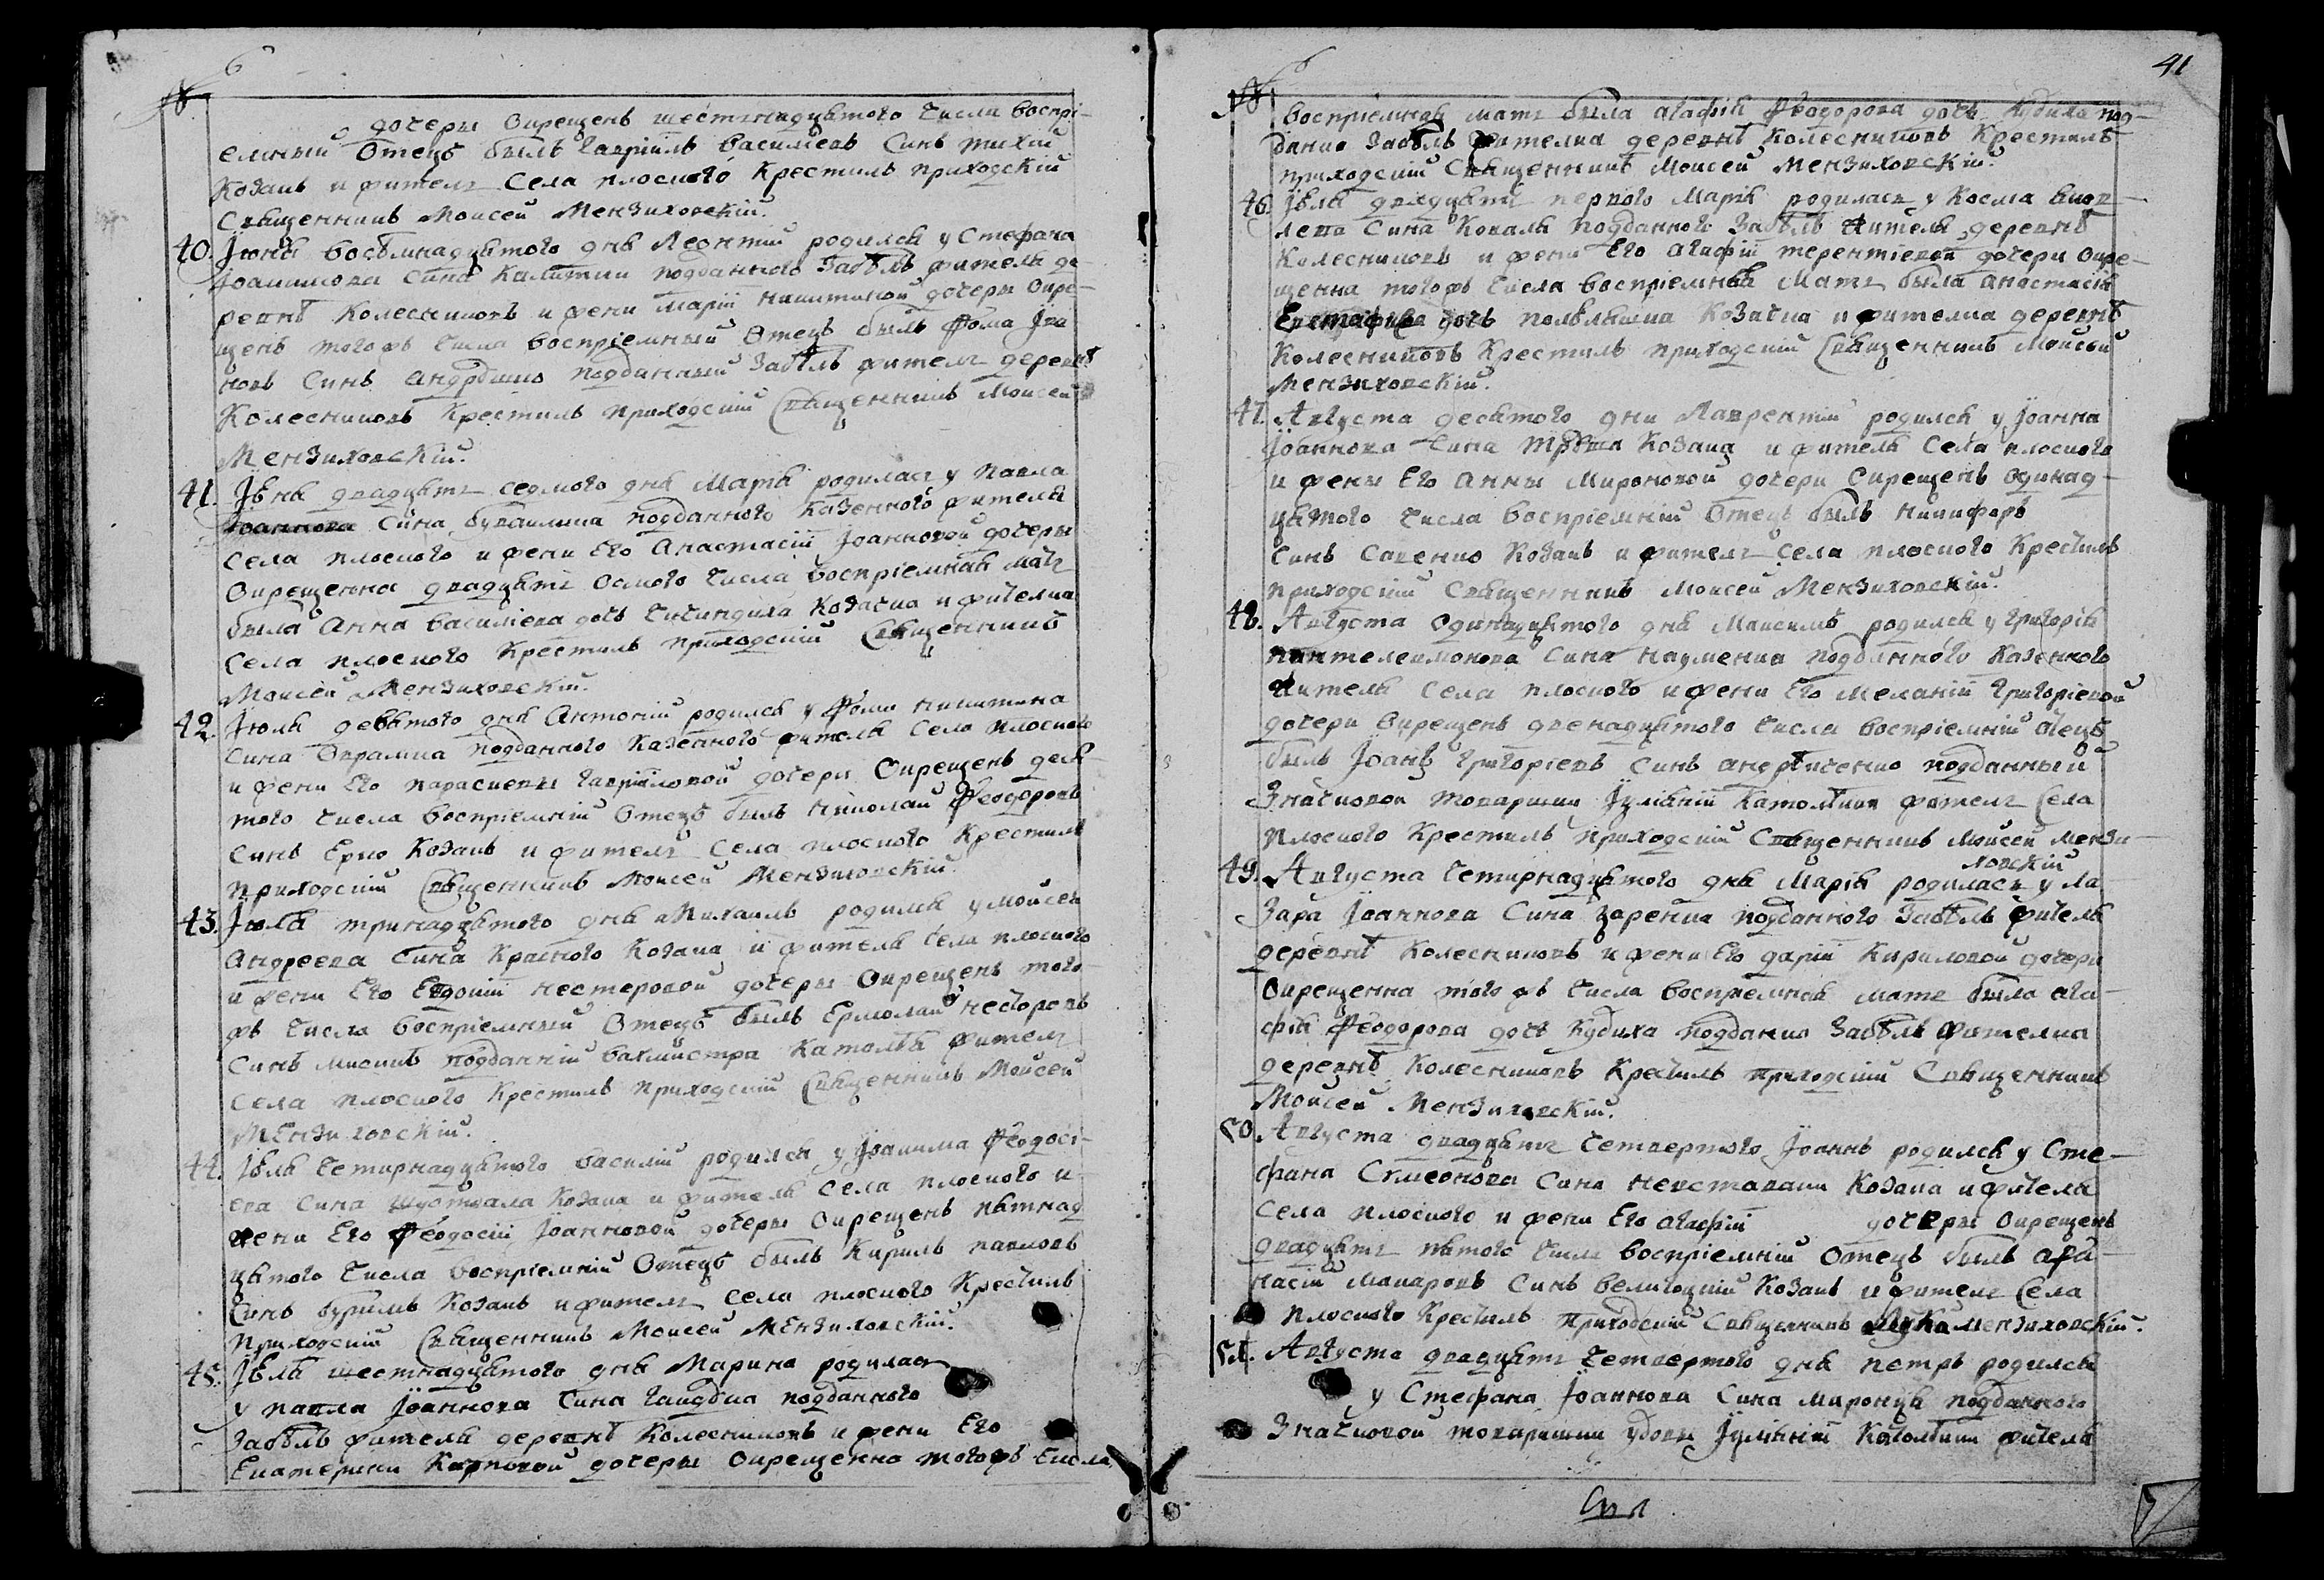 6
№
дочеры Окрещенъ шестнадцѧтого Числа Воспрі-
емный Отецъ былъ Гавріилъ Василіевъ Синъ тихій
Козакъ и жителг Села плоского Крестилъ приходскій
Свѧщенникъ Моисей Мензиховскій.
40. Іюнѧ Восѣмнадцѧтого днѧ Леонтій родилсѧ у Стефана
Іоакимова Сина Калитки подданного Забѣлъ жителѧ де-
ревнѣ Колесниковъ и жени Маріи Никитиной дочеры Окре-
щенъ того жъ Числа Воспріемный Отецъ былъ Фома Іва
новъ Синъ подданный Забѣлъ жителг деревнѣ
Колесниковъ Крестилъ приходскій Свѧщенникъ Моисей
Мензиховскій.
41. Іюнѧ двадцѧтг седмого днѧ Маріѧ родиласг у Павла
Іоаннова Сина подданного Казенного жителѧ
Села плоского и жени Его Анастасіи Іоанновой дочеры
Окрещенна двадцѧтг Осмого Числа Воспріемнаѧ мати
была Анна Василіева дочъ Козачка и жителка
Села плоского Крестилъ приходскій Свѧщенникъ
Моисей Мензиховскій.
42. Іюлѧ девѧтого днѧ Антоній родилсѧ у Фоми Никитина
Сина Овраmка подданного Казенного жителѧ Села плоского
и жени Его параскевы Гавріиловой дочери Окрещенъ десѧ-
того Числа Воспріемній Отецъ былъ Николай Феодоровъ
Синъ Ерко Козакъ и жителг Села плоского Крестилъ
приходскій Свѧщенникъ Моисей Мензиховскій.
43. Іюлѧ тринадцѧтого днѧ Михаилъ родилсѧ у Мойсеѧ
Андреева Сина Красного Козака и жителѧ Села плоского
и жени Его Евдокіи Нестеровой дочеры Окрещенъ того
жъ Числа Воспріемный Отецъ былъ Ермолай Несторовъ
Синъ подданній жителг
Села плоского Крестилъ приходскій Свѧщенникъ Мойсей
Мензиховскій.
44. Іюлѧ Четирнадцѧтого Василій родилсѧ у Іоакима Феодосі-
ева Сина Козака и жителѧ Села плоского и
жени Его Феодосіи Іоанновой дочеры Окрещенъ пѧтнад
цѧтого Числа Воспріемній Отецъ былъ Кирилъ павловъ
Синъ Козакъ и жителг Села плоского Крестилъ
приходскій Свѧщенникъ Моисей Мензиховскій.
45. Іюлѧ шестнадцѧтого днѧ Марина родиласг
у павла Іоаннова Сина подданного
Забѣлъ жителѧ деревнѣ Колесниковъ и жени Его
Екатерини Карповой дочеры Окрещенна того жъ Числа
6
41
№
воспріемнаѧ матг была Агафіѧ Феодорова дочъ Кудиха под-
данно Забѣлъ жителка деревнѣ Колесниковъ Крестилъ
приходскій Свѧщенникъ Моисей Мензиховскій.
46. Іюлѧ двадцѧтг первого Маріѧ родиласг у Косма
Сина Ковалѧ подданного Забѣлъ жителѧ деревнѣ
Колесниковъ и жени Его Агафіи терентіевой дочери Окре-
щенна того жъ Числа Воспріемнаѧ Матг была Анастасіѧ
дочъ Козачка и жителка деревнѣ
Колесниковъ Крестилъ приходскій Свѧщенникъ Мойсей
Мензиховскій.
47. Августа десѧтого дни Лаврентій родилсѧ у Іоанна
Іоаннова Сина Козака и жителѧ Села плоского
и жены Его Анны Мироновой дочери Окрещенъ одинад-
цѧтого Числа Воспріемній Отецъ былъ Никифоръ
Синъ Савенко Козакъ и жителг Села плоского Крестилъ
приходскій Свѧщенникъ Моисей Мензиховскій.
48. Августа Одинадцѧтого днѧ Максимъ родилсѧ у Григоріѧ
пантелеимонова Сина Науменка подданного Казенного
жителѧ Села плоского и жени Его Меланіи Григоріевой
дочери Окрещенъ дванадцѧтого Числа воспріемній Отецъ
былъ Іоанъ Григоріевъ Синъ подданный
Значковой товаришки Іуліѧніи жителг Села
плоского Крестилъ приходскій Свѧщенникъ Мойсей Мензи-
ховскій
49. Августа Четирнадцѧтого днѧ Маріѧ родиласг у Ла
зара Іоаннова Сина подданного Забѣлъ жителѧ
деревнѣ Колесниковъ и жени Его Даріи Кириловой дочери
Окрещенна того жъ Числа Воспріемнаѧ матг была Ага-
фіѧ Феодорова дочъ Кудиха подданно Забѣлъ жителка
деревнѣ Колесниковъ Крестилъ приходскій Свѧщенникъ
Мойсей Мензиховскій.
50. Августа двадцѧтг Четвертого Іоаннъ родилсѧ у Сте-
фана Сѵмеонова Сина Козака и жителѧ
Села плоского и жени Его Агафіи дочеры Окрещенъ
двадцѧтг пѧтого Числа воспріемній Отецъ былъ Афа-
насій Макаровъ Синъ Велигоцкій Козакъ и жителг Села
плоского Крестилъ приходскій Свѧщенникъ Лука Мензиховскій.
51. Августа двадцѧтг Четвертого днѧ петръ родилсѧ
у Стефана Іоаннова Сина подданного
Значковой товаришки удовы Іуліѧніи жителѧ